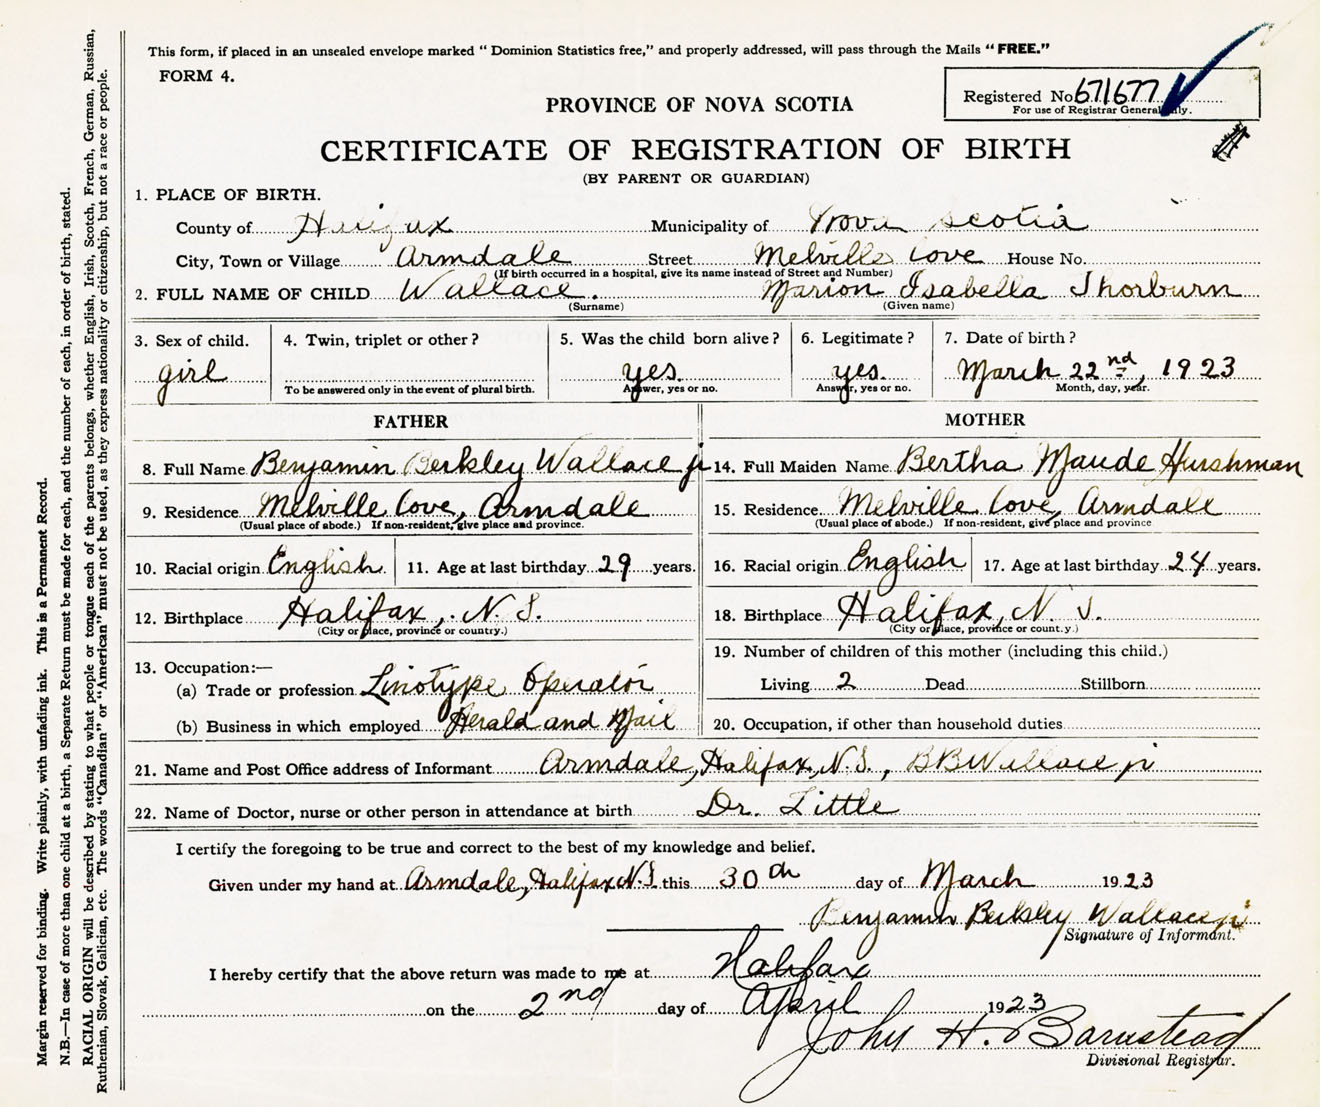 This form, if placed in an unsealed envelope marked "Dominion Statistics free," and properly addressed, will pass through the Mails "FREE."
FORM 4.
Registered No. 671677
For use of Registrar General only.
PROVINCE OF NOVA SCOTIA
CERTIFICATE OF REGISTRATION OF BIRTH
(BY PARENT OR GUARDIAN)
1. PLACE OF BIRTH.
County of Halifax Municipality of Nova Scotia
City, Town or Village Armdale Street Melville Cove House No.
(If birth occurred in a hospital, give its name instead of Street and Number)
2. FULL NAME OF CHILD Wallace. Marion Isabella Thorburn
(Surname) (Given name)
3. Sex of child. 4. Twin, triplet or other? 5. Was the child born alive? 6. Legitimate? 7. Date of birth?
girl yes. yes. March 22nd, 1923
To be answered only in the event of plural birth. Answer, yes or no. Answer, yes or no. Month, day, year.
FATHER MOTHER
8. Full Name Benjamin Berksley Wallace jr 14. Full Maiden Name Bertha Maude Hushman
9. Residence Melville Cove, Armdale 15. Residence Melville Cove, Armdale
(Usual place of abode.) If non-resident, give place and province. (Usual place of abode.) If non-resident, give place and province
10. Racial origin English 11. Age at last birthday 29 years. 16. Racial origin English 17. Age at last birthday 24 years.
12. Birthplace Halifax, N. S. 18. Birthplace Halifax, N. S.
(City or place, province or country.) (City or place, province or count.y.)
13. Occupation:— 19. Number of children of this mother (including this child.)
(a) Trade or profession Linotype Operator Living 2 Dead Stillborn
(b) Business in which employed Herald and Mail 20. Occupation, if other than household duties
21. Name and Post Office address of Informant Armdale, Halifax, N.S., BBWallace jr
22. Name of Doctor, nurse or other person in attendance at birth Dr. Little
I certify the foregoing to be true and correct to the best of my knowledge and belief.
Given under my hand at Armdale, Halifax N.S. this 30th day of March 1923
Benjamin Berksley Wallace jr
Signature of Informant.
I hereby certify that the above return was made to me at Halifax
on the 2nd day of April 1923
John H. Barnstead
Divisional Registrar.
Margin reserved for binding. Write plainly, with unfading ink. This is a Permanent Record.
N.B.—In case of more than one child at a birth, a Separate Return must be made for each, and the number of each, in order of birth, stated.
RACIAL ORIGIN will be described by stating to what people or tongue each of the parents belongs, whether English, Irish, Scotch, French, German, Russian,
Ruthenian, Slovak, Galician, etc. The words "Canadian" or "American" must not be used, as they express nationality or citizenship, but not a race or people.